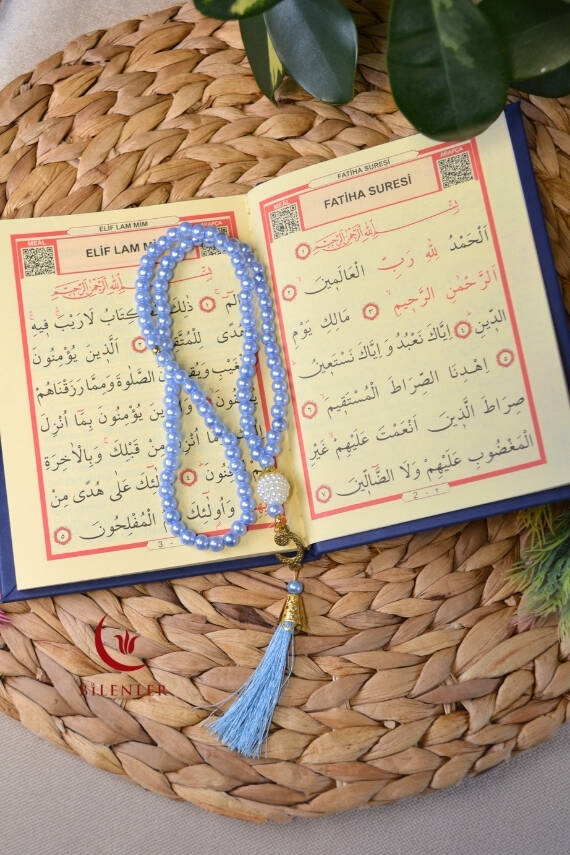 FATİHA SURESİ
MEAL
ARAPÇA
FATİHA SURESİ
بِسْمِ اللّٰهِ الرَّحْمٰنِ الرَّحِيمِ ١
اَلْحَمْدُ لِلّٰهِ رَبِّ الْعَالَمِينَ ٢
اَلرَّحْمٰنِ الرَّحِيمِ ٣ مَالِكِ يَوْمِ
الدِّينِ ٤ اِيَّاكَ نَعْبُدُ وَاِيَّاكَ نَسْتَعِينُ
٥ اِهْدِنَا الصِّرَاطَ الْمُسْتَقِيمَ ٦
صِرَاطَ الَّذِينَ اَنْعَمْتَ عَلَيْهِمْ غَيْرِ
الْمَغْضُوبِ عَلَيْهِمْ وَلَا الضَّالِّينَ ٧
2 - 1
ELİF LAM MİM
MEAL
ARAPÇA
ELİF LAM Mİ
بِسْمِ اللّٰهِ الرَّحْمٰنِ الرَّحِيمِ
الٓمٓ ذٰلِكَ كِتَابُ لَا رَيْبَ فِيهِ
هُدًى لِلْمُتَّقِ اَلَّذِينَ يُؤْمِنُونَ
غَيْبِ وَيُقِ الصَّلٰوةَ وَمِمَّا رَزَقْنَاهُمْ
يُنْفِقُونَ ين يُؤْمِنُونَ بِمَا اُنْزِلَ
مَا اُنْزِلَ مِنْ قَبْلِكَ وَبِالْاٰخِرَةِ
قِنُونَ ٤ ئِكَ عَلٰى هُدًى مِنْ
وَاُولٰئِكَ الْمُفْلِحُونَ ٥
3 -
BİLENLER